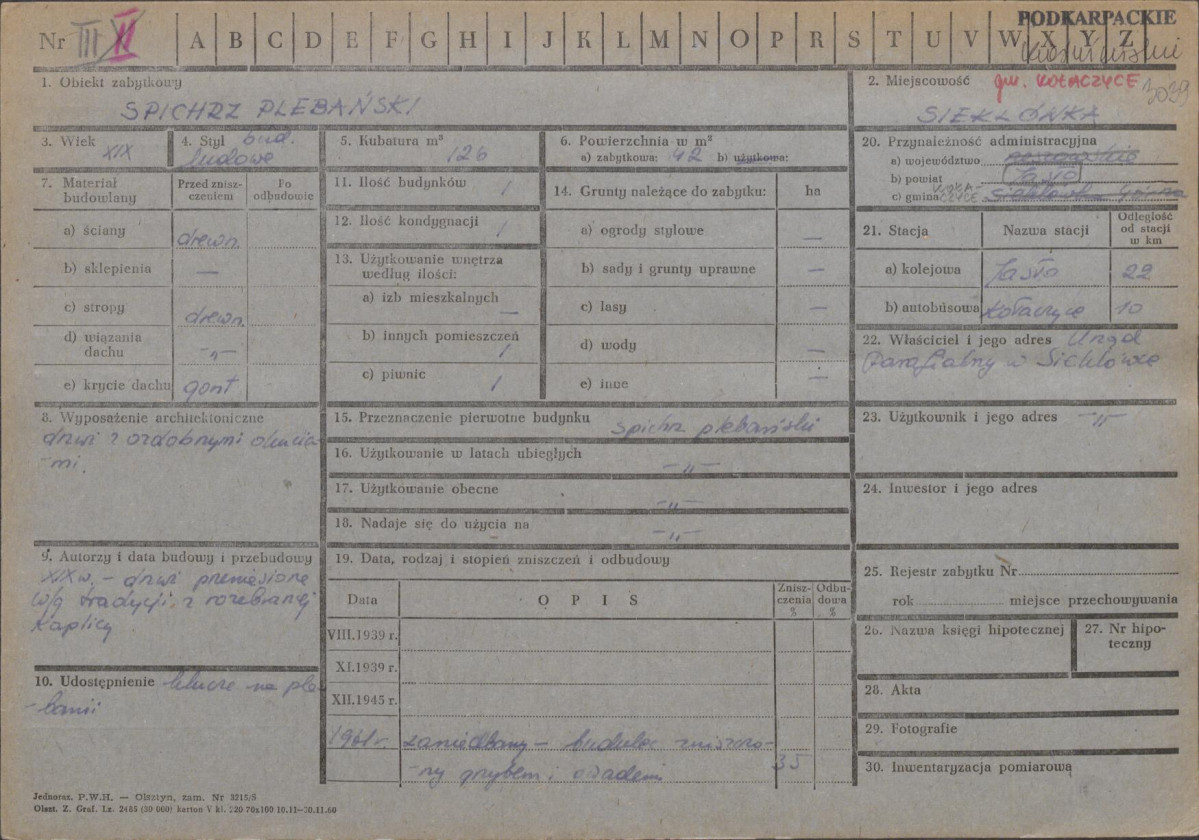 Nr III II A B C D E F G H I J K L M N O P R S T U V W X Y Z
PODKARPACKIE
1. Obiekt zabytkowy
SPICHRZ PLEBAŃSKI
2. Miejscowość gm. KOŁACZYCE 3039
SIEKLÓWKA
3. Wiek XIX
4. Styl bud.
ludowe
5. Kubatura m³
126
6. Powierzchnia w m²
a) zabytkowa: 42 b) użytkowa:
20. Przynależność administracyjna
a) województwo rzeszowskie
b) powiat Jasło
c) gmina KOŁACZYCE Sieklówka Górna
7. Materiał budowlany
Przed zniszczeniem
Po odbudowie
a) ściany drewn.
b) sklepienia —
c) stropy drewn.
d) wiązania dachu -„-
e) krycie dachu gont
11. Ilość budynków 1
12. Ilość kondygnacji 1
13. Użytkowanie wnętrza
według ilości:
a) izb mieszkalnych —
b) innych pomieszczeń 1
c) piwnic 1
14. Grunty należące do zabytku: ha
a) ogrody stylowe —
b) sady i grunty uprawne —
c) lasy —
d) wody —
e) inne —
21. Stacja
Nazwa stacji
Odległość
od stacji
w km
a) kolejowa Jasło 22
b) autobusowa Kołaczyce 10
22. Właściciel i jego adres Urząd
Parafialny w Sieklówce
8. Wyposażenie architektoniczne
drzwi z ozdobnymi okucia-
-mi.
15. Przeznaczenie pierwotne budynku
spichrz plebański
16. Użytkowanie w latach ubiegłych
-„-
17. Użytkowanie obecne
-„-
18. Nadaje się do użycia na
-„-
23. Użytkownik i jego adres -„-
24. Inwestor i jego adres
9. Autorzy i data budowy i przebudowy
XIX w. - drzwi przeniesione
w/g tradycji z rozebranej
kaplicy
10. Udostępnienie klucze na ple-
-banii
19. Data, rodzaj i stopień zniszczeń i odbudowy
Data
OPIS
Znisz-
czenia
%
Odbu-
dowa
%
VIII.1939 r.
XI.1939 r.
XII.1945 r.
1961 r. zaniedbany - budulec zniszczo-
-ny grzybem i owadem 35
25. Rejestr zabytku Nr
rok miejsce przechowywania
26. Nazwa księgi hipotecznej
27. Nr hipo-
teczny
28. Akta
29. Fotografie
30. Inwentaryzacja pomiarowa
Jednoraz. P.W.H. — Olsztyn, zam. Nr 3215/S
Olszt. Z. Graf. Lz. 2485 (30 000) karton V kl. 220 70x100 10.11—30.11.60